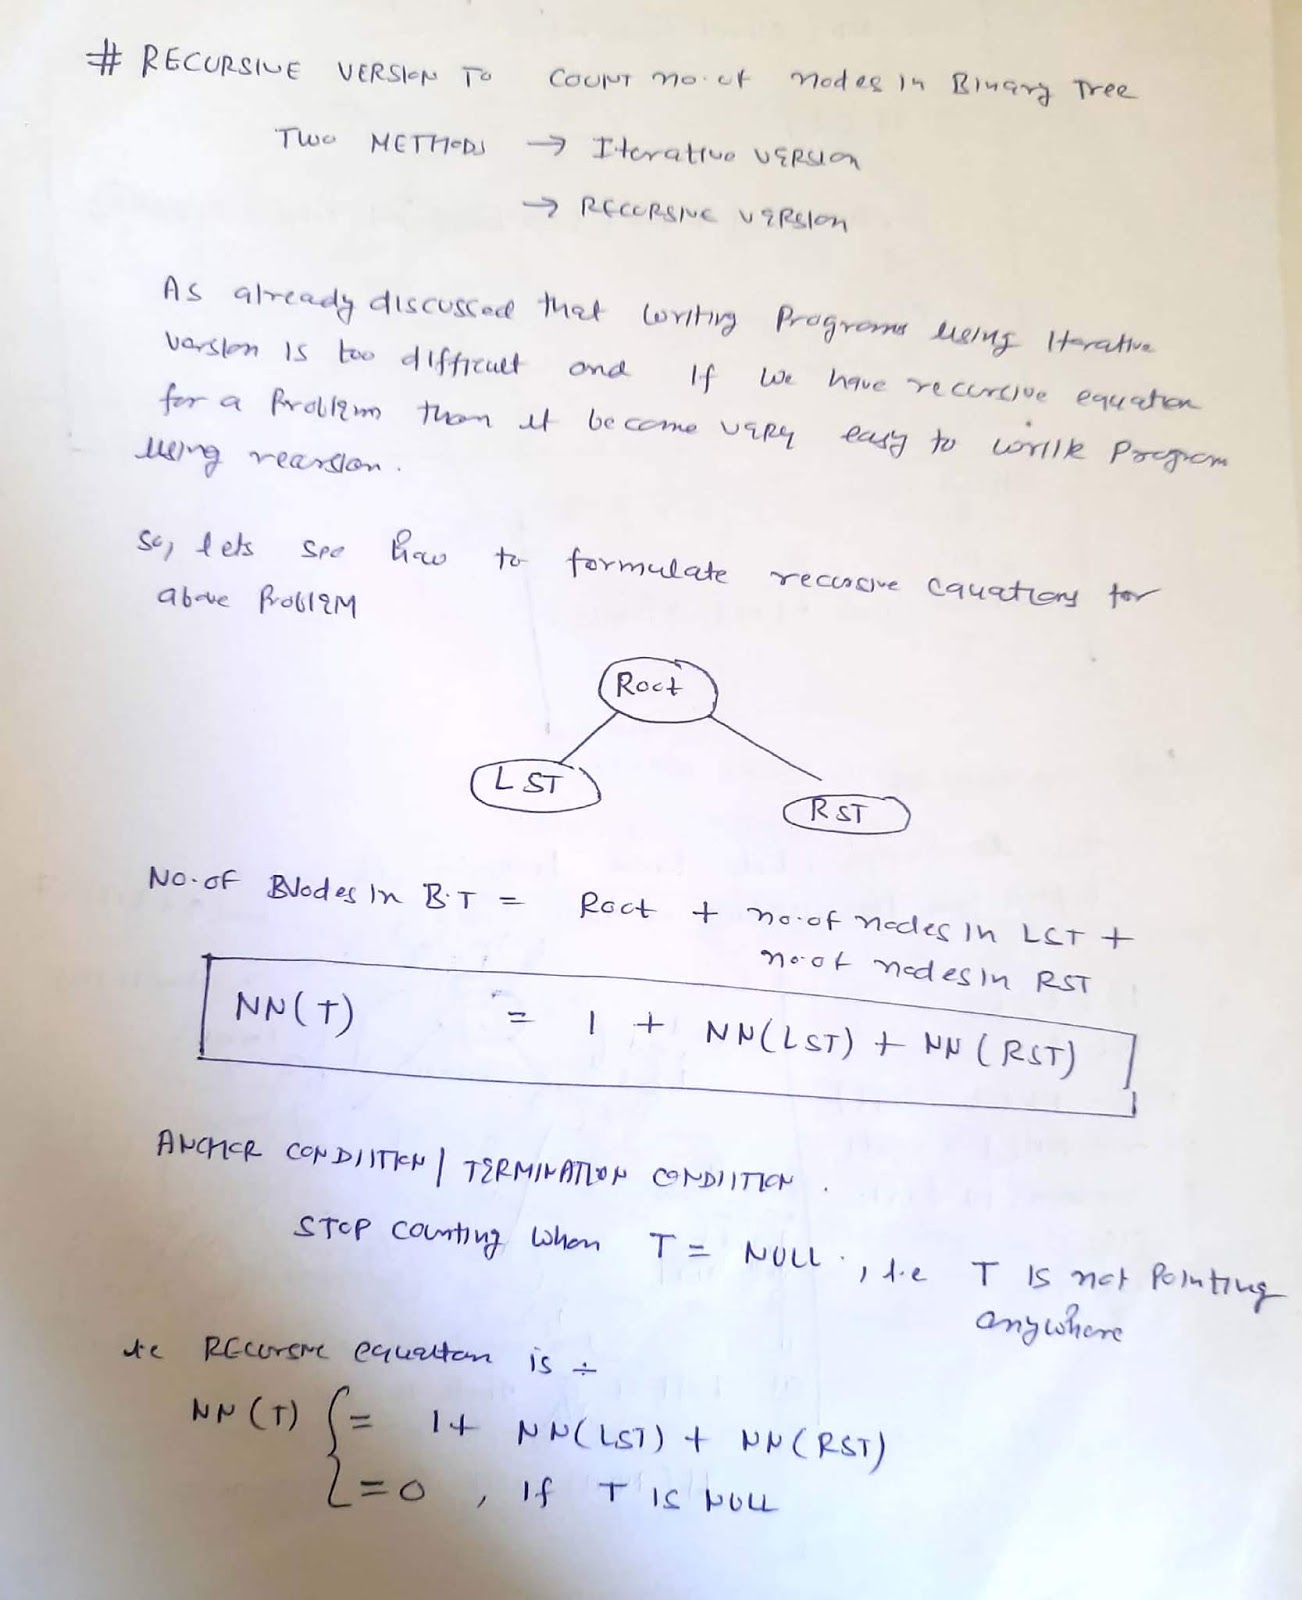 # RECURSIVE VERSION TO COUNT no. of nodes in Binary Tree
TWO METHODS → Iterative VERSION
→ RECURSIVE VERSION
As already discussed that writing Programs using Iterative
version is too difficult and if we have recursive equation
for a Problem then it become very easy to write Program
using recursion.
So, lets see how to formulate recursive equations for
above Problem
Root
LST
RST
No. of Nodes in B.T = Root + no. of nodes in LST +
no. of nodes in RST
NN(T) = 1 + NN(LST) + NN(RST)
ANCHOR CONDIITION | TERMINATION CONDIITION.
STOP counting when T = NULL., i.e T is not Pointing
anywhere
i.e Recursive equation is ÷
NN(T) { = 1+ NN(LST) + NN(RST)
= 0 , if T is NULL